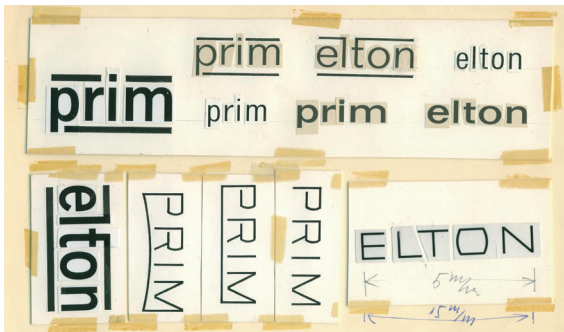 prim elton elton
prim prim prim elton
elton PRIM PRIM PRIM
ELTON
5 m/m
15 m/m